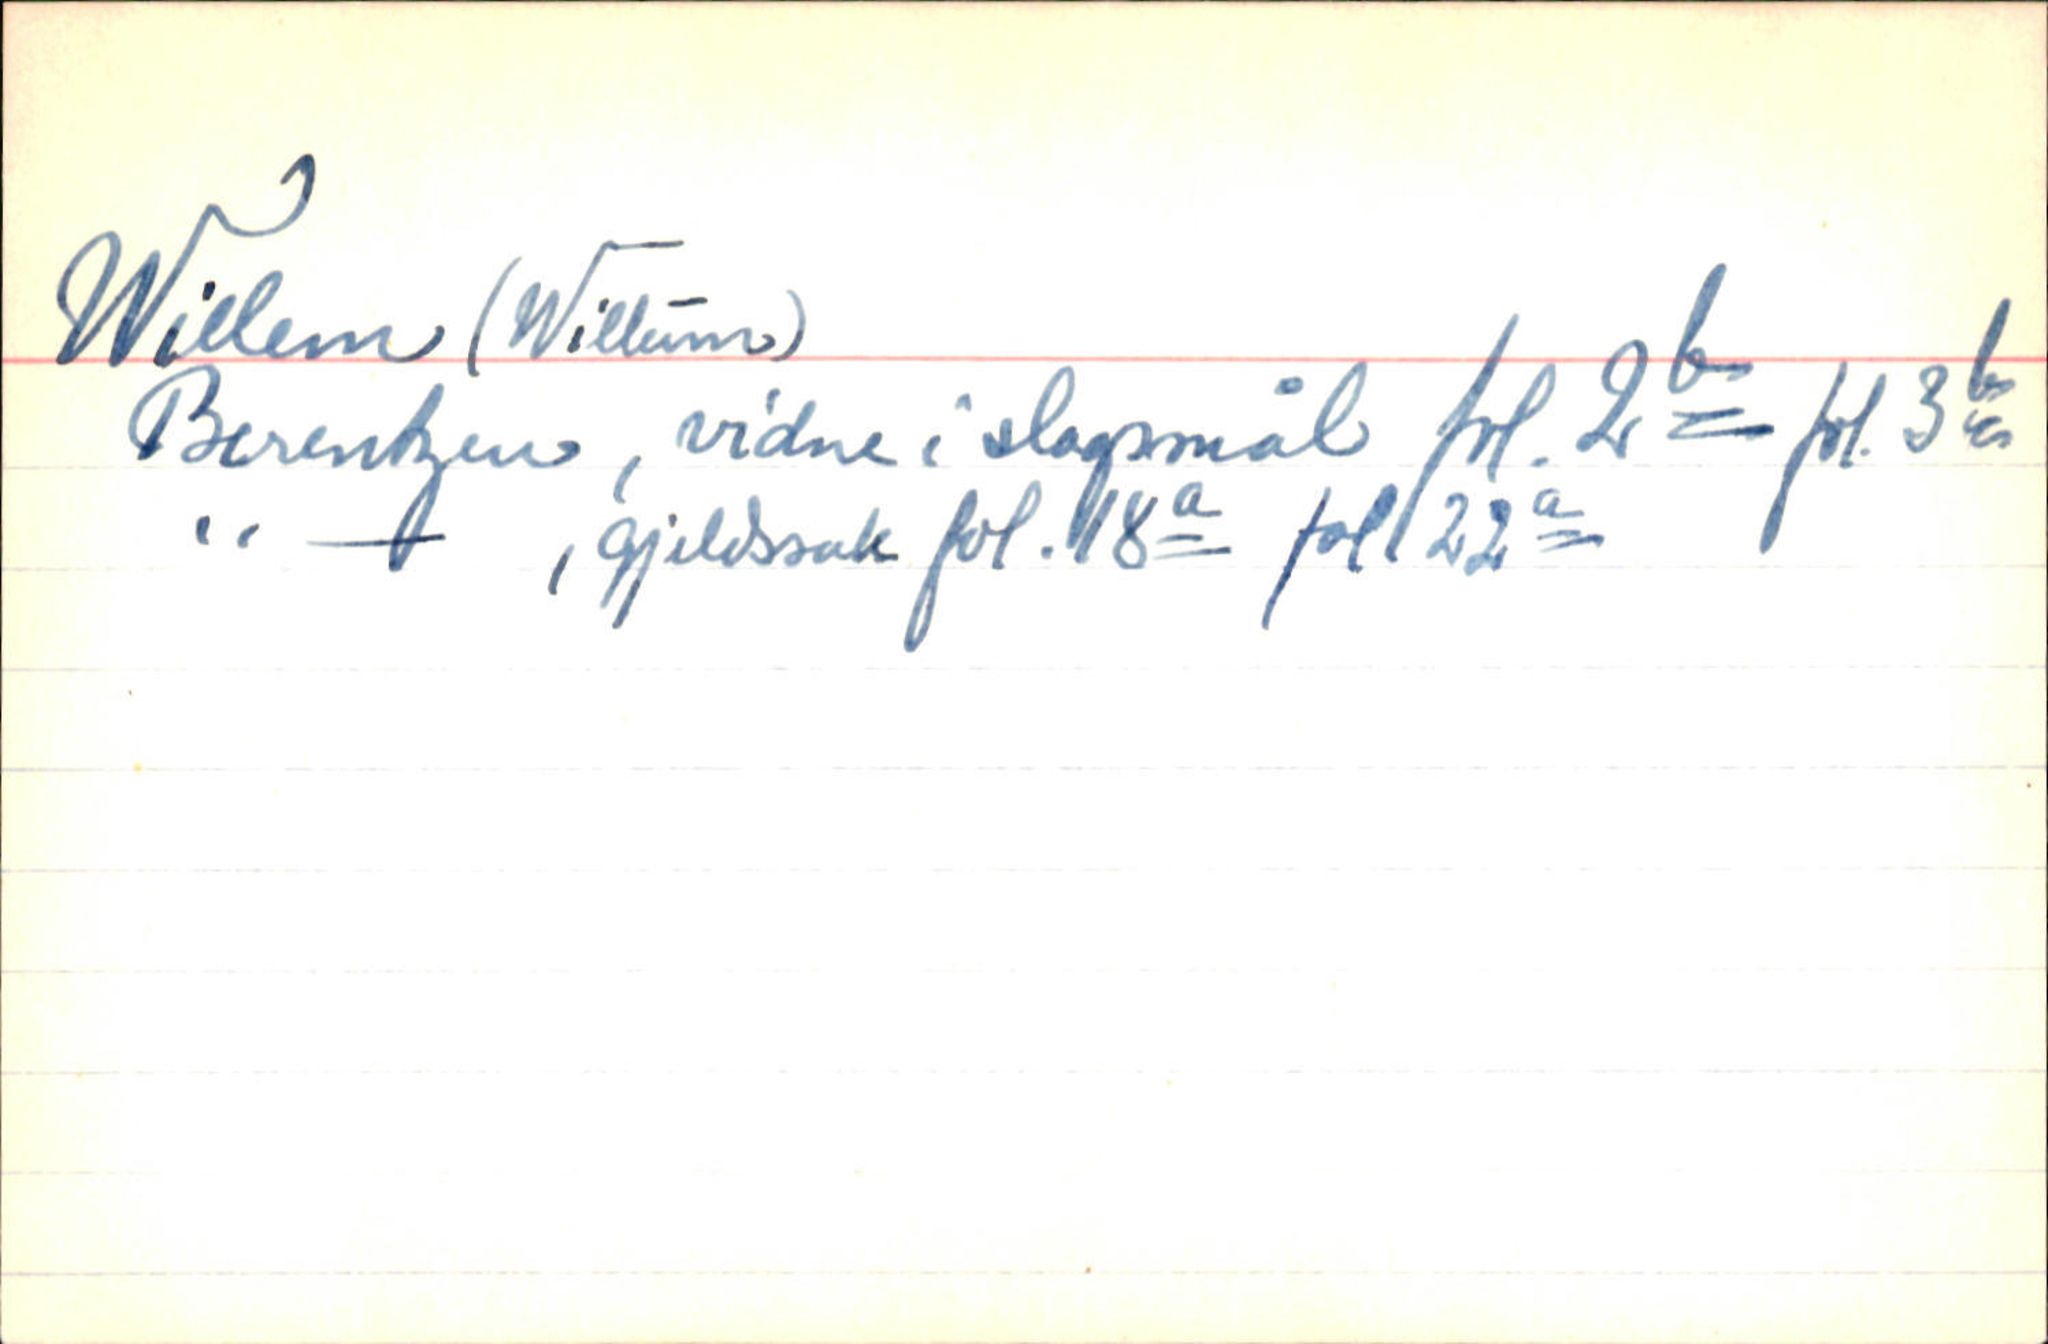 Willem (Willum)
Berentzen, vidne i slagsmål fol. 2b fol. 3b
" — , gjeldssak fol. 18a fol 22a